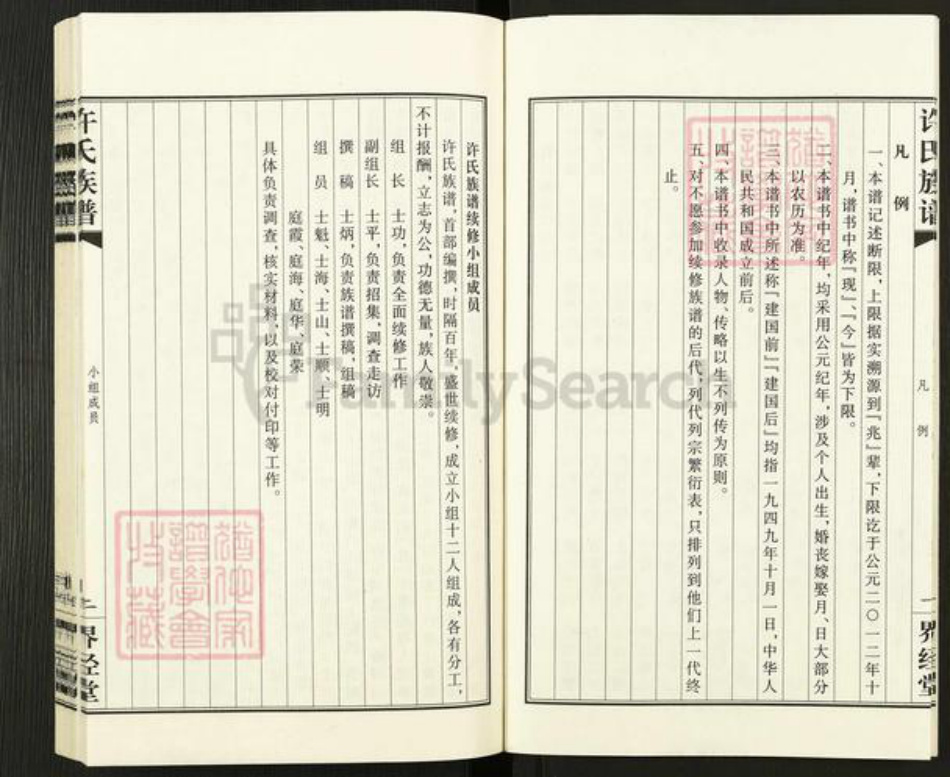 许氏族谱
凡例
一
界经堂
凡 例
一、本谱记述断限，上限据实溯源到『兆』辈，下限讫于公元二〇一二年十
月，谱书中称『现』、『今』皆为下限。
二、本谱书中纪年，均采用公元纪年，涉及个人出生，婚丧嫁娶月、日大部分
以农历为准。
三、本谱书中所述称『建国前』『建国后』均指一九四九年十月一日，中华人
民共和国成立前后。
四、本谱书中收录人物、传略以生不列传为原则。
五、对不愿参加续修族谱的后代，列代列宗繁衍表，只排列到他们上一代终
止。
许氏族谱续修小组成员
许氏族谱，首部编撰，时隔百年，盛世续修，成立小组十二人组成，各有分工，
不计报酬，立志为公，功德无量，族人敬崇。
组 长 士功，负责全面续修工作
副组长 士平，负责招集，调查走访
撰 稿 士炳，负责族谱撰稿，组稿
组 员 士魁、士海、士山、士顺、士明
庭霞、庭海、庭华、庭荣
具体负责调查，核实材料，以及校对付印等工作。
许氏族谱
小组成员
二
界经堂
FamilySearch